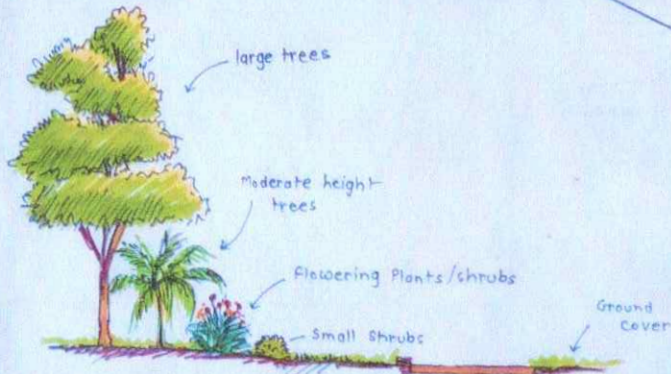 large trees
Moderate height
trees
Flowering Plants/shrubs
Small Shrubs
Ground
cover